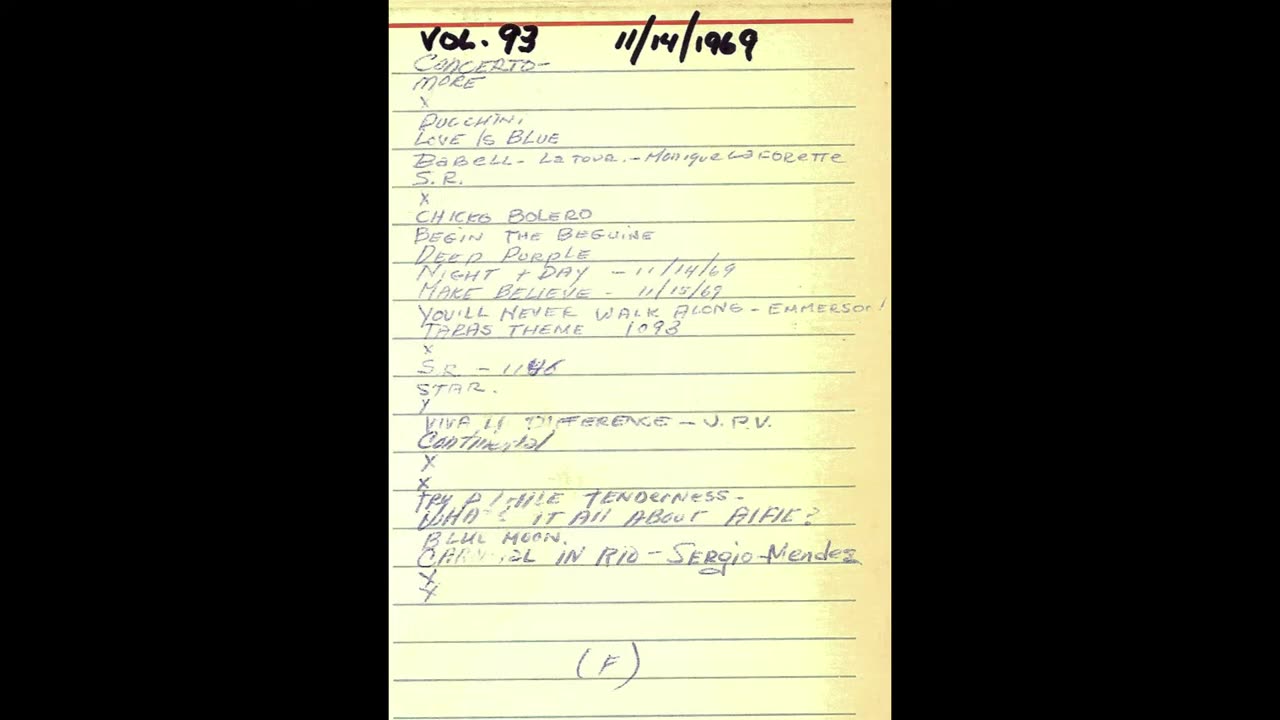 VOL. 93 11/14/1969
CONCERTO-
MORE
X
PUCCHINI
LOVE IS BLUE
LA TOUR. - MONIQUE LAFORETTE
S.R.
X
CHICKO BOLERO
BEGIN THE BEGUINE
DEEP PURPLE
NIGHT + DAY - 11/14/69
MAKE BELIEVE - 11/15/69
YOU'LL NEVER WALK ALONG - EMMERSON!
TARAS THEME 1093
X
S.R. -
STAR.
Y
VIVA DIFFERENCE - J.P.V.
Continental
X
X
TRY TENDERNESS -
WHATS IT All ABOUT AlFIE?
BLUE MOON.
CARNIVAL IN RIO - SERgio-Mendez
X
X
(F)